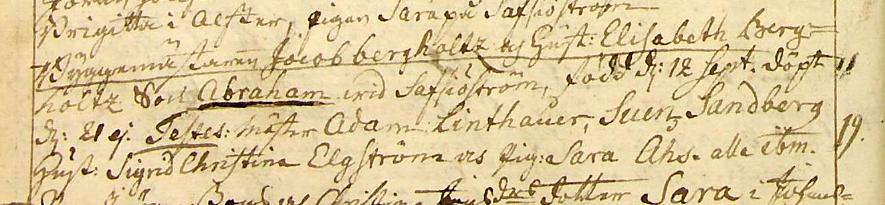 Brigitta i Alster, Pigan Sara på Safsiöström
Byggemästaren Jacob bergholtz og Hust: Elisabeth Berg=
holtz Son Abraham wid Safsiöström, född d: 12 Sept. döpt 11
d: 21 ej. Testes: mäster Adam Linthauer, Suen Sandberg
Hust: Sigrid Christina Elgström us Pig: Sara Ahs. alla ibm. 19.
Christina dotter Sara i